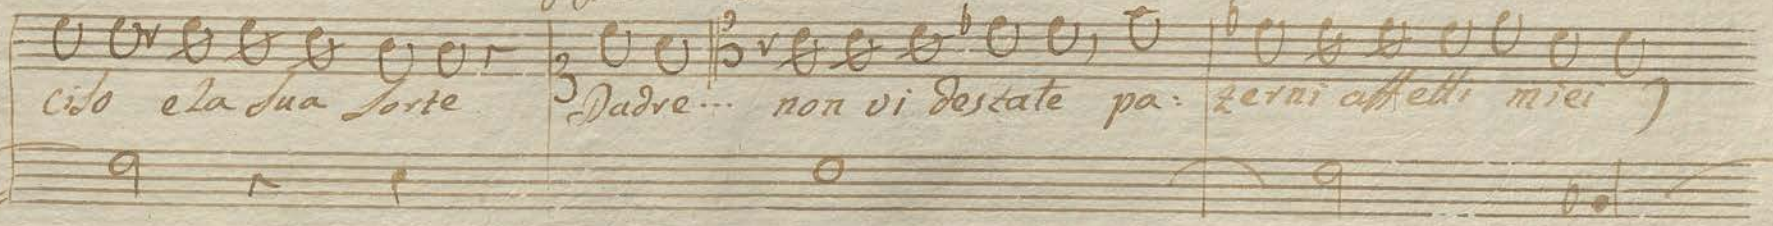 ciso e la sua sorte Padre... non vi destate pa: terni affetti miei )